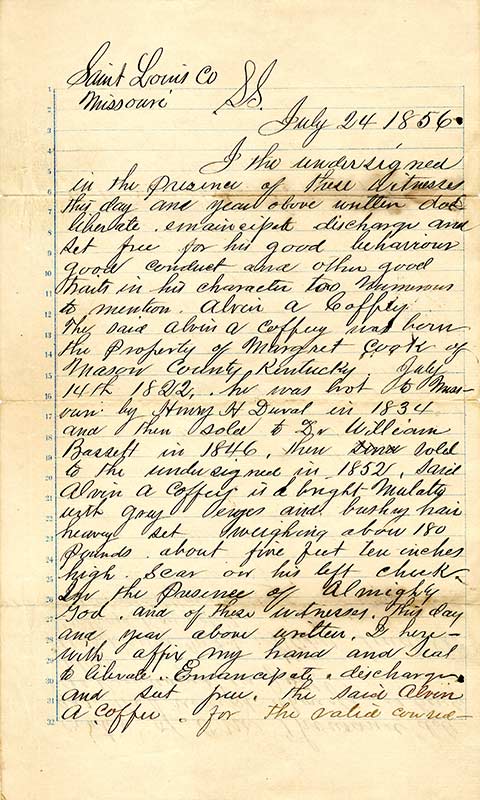 Saint Louis Co
Missouri SS.
July 24 1856.
I the undersigned
in the Presence of these witnesses
this day and year above written do
liberate . emaincipate discharge and
set free for his good behaviour
good conduct and other good
traits in his character too numerous
to mention. Alvin A Coffey.
The said Alvin A Coffey was born
the Property of Margret Cook of
Mason County Kentucky. July
14th 1822. he was brot to Miss-
ouri by Henry H Duval in 1834
and then sold to Dr William
Bassett in 1846, then sold
to the undersigned in 1852. Said
Alvin A Coffey is a bright Mulatto
with gray eyes and bushy hair
heavy set weighing about 180
pounds. about five feet ten inches
high. Scar on his left cheek-
In the Presence of Almighty
God. and of these witnesses. this day
and year above written. I here-
with affix my hand and seal
to liberate. Emancipate. discharge
and set free. the said Alvin
A Coffee. for the valid consid-
1
2
3
4
5
6
7
8
9
10
11
12
13
14
15
16
17
18
19
20
21
22
23
24
25
26
27
28
29
30
31
32